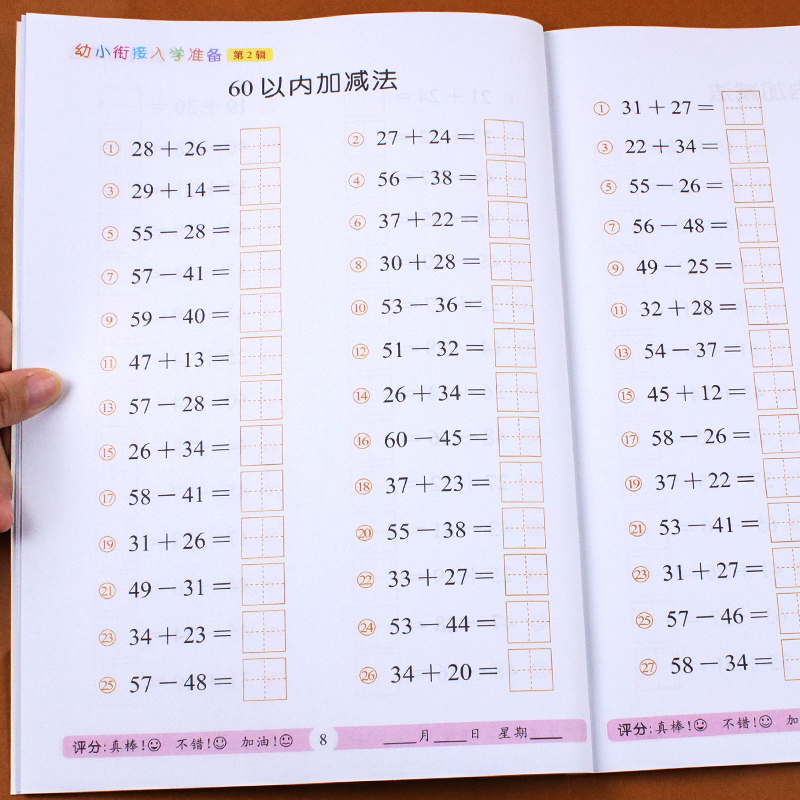 幼小衔接入学准备 第2辑
60以内加减法
① 28+26= ② 27+24=
③ 29+14= ④ 56-38=
⑤ 55-28= ⑥ 37+22=
⑦ 57-41= ⑧ 30+28=
⑨ 59-40= ⑩ 53-36=
⑪ 47+13= ⑫ 51-32=
⑬ 57-28= ⑭ 26+34=
⑮ 26+34= ⑯ 60-45=
⑰ 58-41= ⑱ 37+23=
⑲ 31+26= ⑳ 55-38=
㉑ 49-31= ㉒ 33+27=
㉓ 34+23= ㉔ 53-44=
㉕ 57-48= ㉖ 34+20=
评分:真棒! 不错! 加油! 8 ____月____日 星期____
① 31+27=
③ 22+34=
⑤ 55-26=
⑦ 56-48=
⑨ 49-25=
⑪ 32+28=
⑬ 54-37=
⑮ 45+12=
⑰ 58-26=
⑲ 37+22=
㉑ 53-41=
㉓ 31+27=
㉕ 57-46=
㉗ 58-34=
评分:真棒! 不错! 加